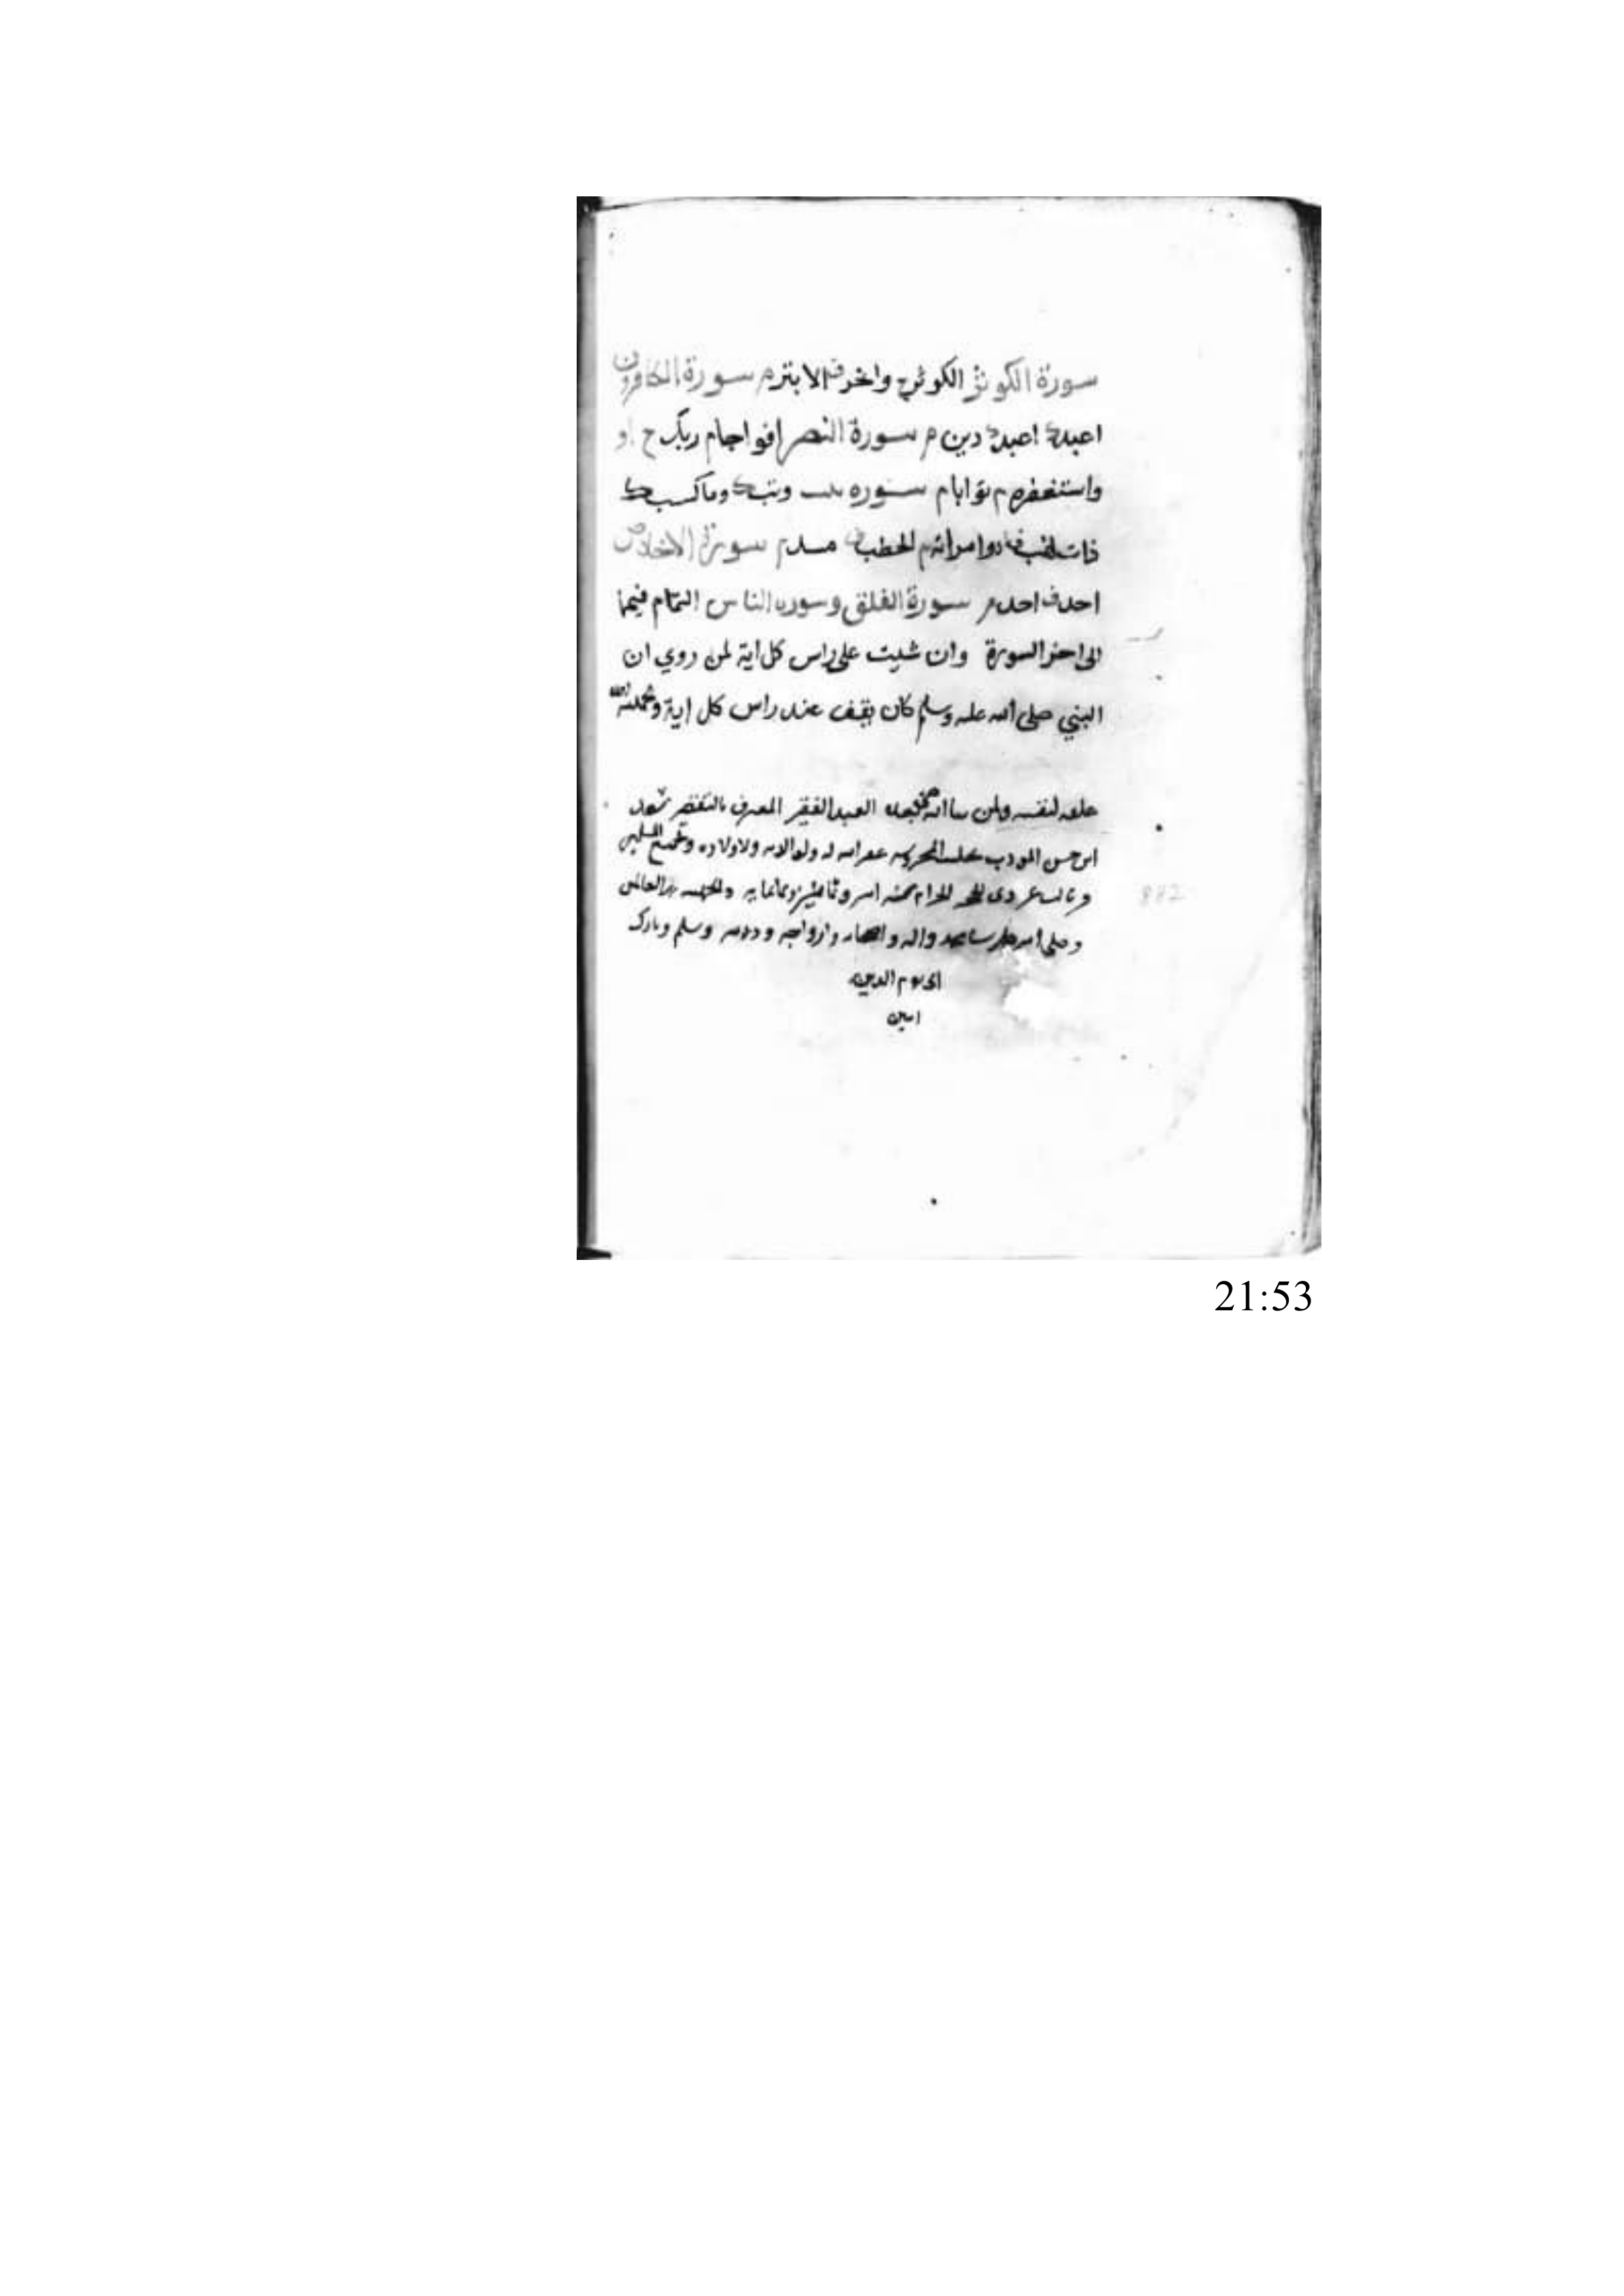 سورة الكوثر الكوثر ج وانحر الابتر م سورة الكافرون
اعبد اعبد دين م سورة النصر افواجا م ربك ج او
واستغفره م توابا م سوره تبت وتب وما كسب
ذات لهب وامراته الحطب مسد م سورة الاخلاص
احد احد م سورة الفلق وسورة الناس التمام فيهما
الى اخر السورة وان شيت على راس كل اية لمن روي ان
النبي صلى الله عليه وسلم كان يقف عند راس كل اية
علقه لنفسه ولمن شا الله بعده العبد الفقير المعترف بالتقصير
ابن حسن المودب المحروسه غفر الله له ولوالديه ولاولاده ولجميع المسلمين
الحرام سنه وثمانين وثمانمايه والحمد لله رب العالمين
وصلى الله على سيدنا محمد واله واصحابه وازواجه وذريته وسلم وبارك
الى يوم الدين
امين
882
21:53